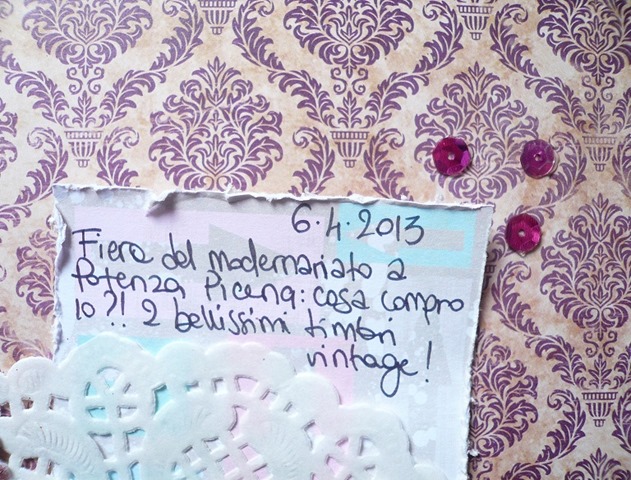 6.4.2013
Fiera del modernariato a
Potenza Picena: cosa compro
io?!! 2 bellissimi timbri
vintage!